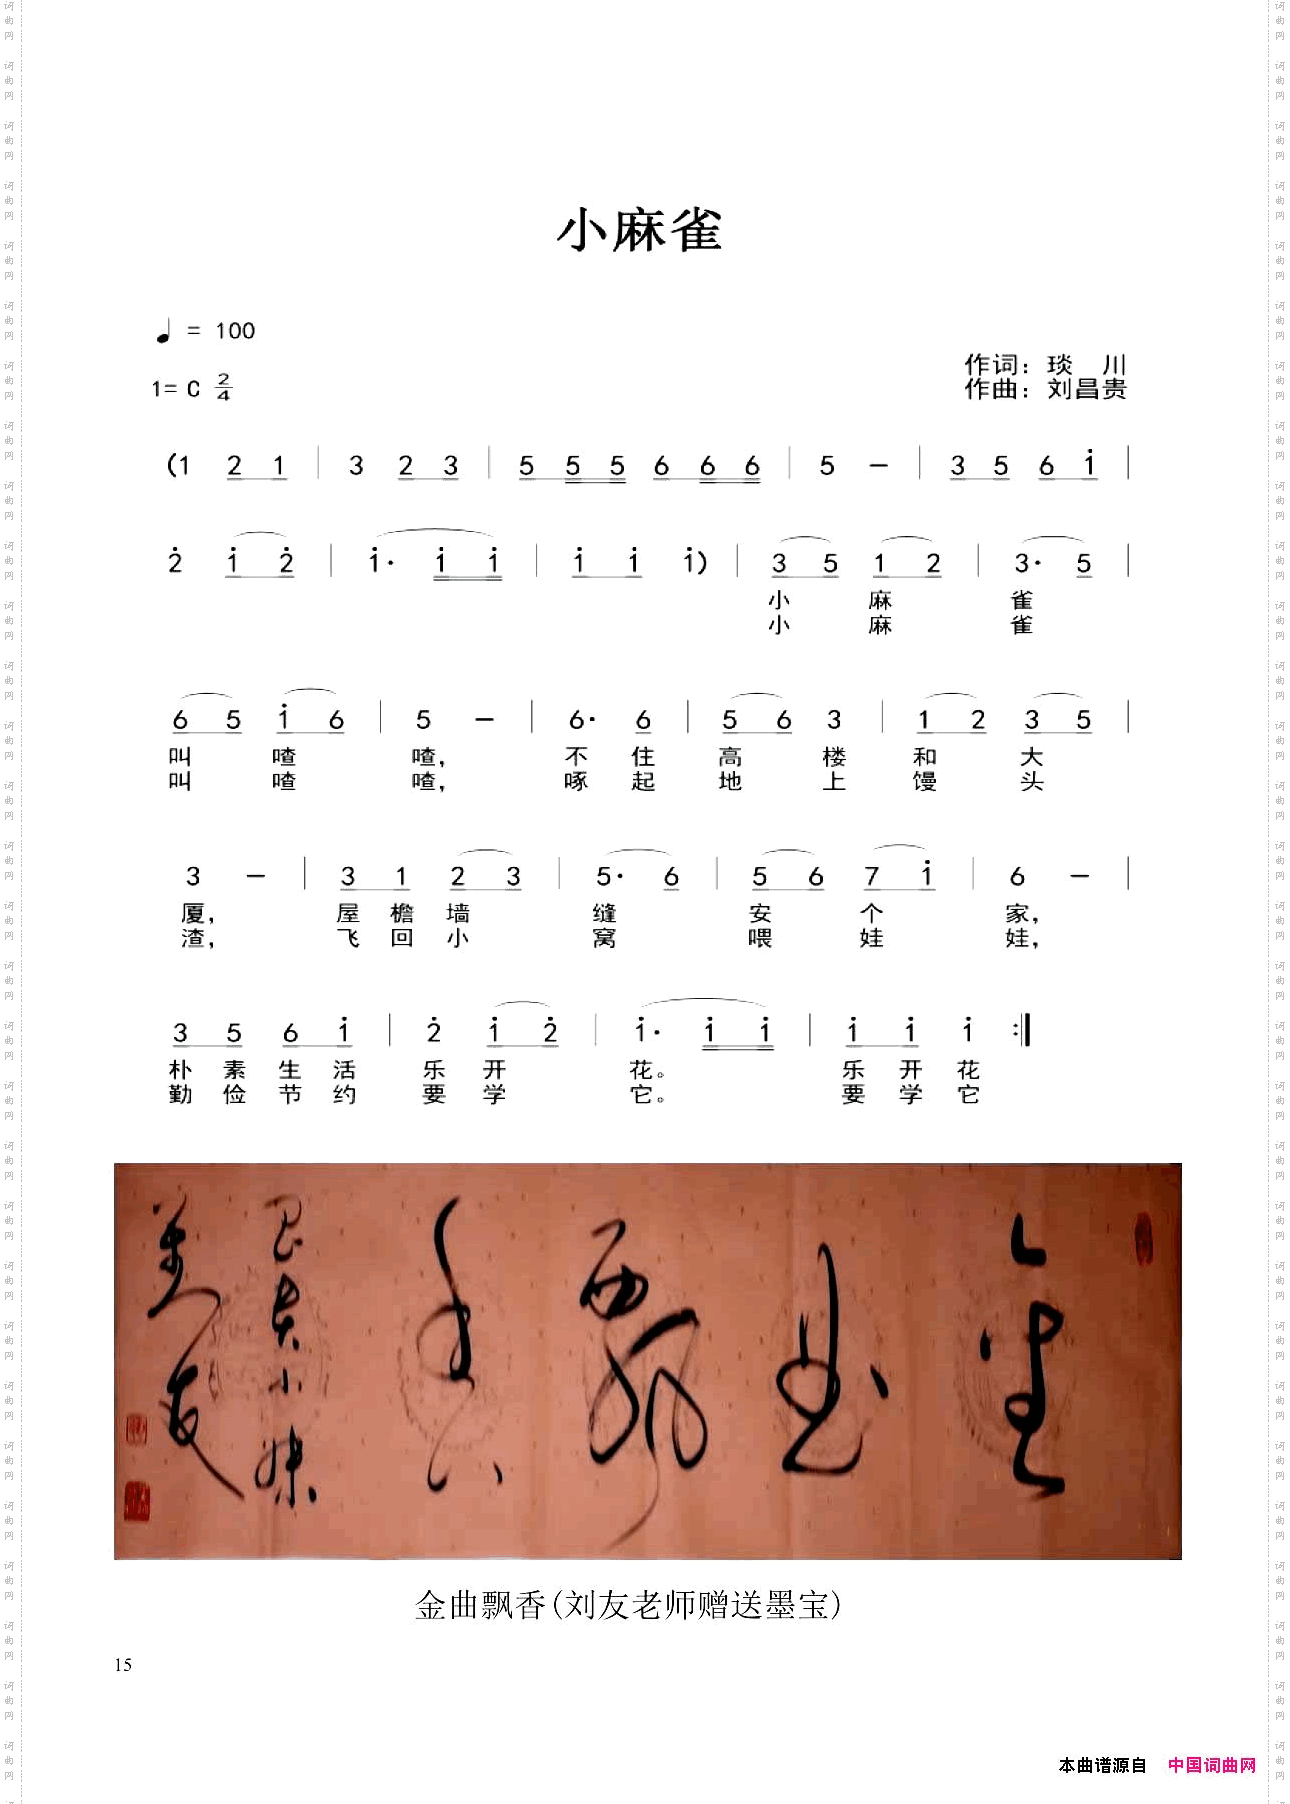 小麻雀
♩ = 100
作词：琰 川
1= C 2/4
作曲：刘昌贵
(1 2 1 | 3 2 3 | 5 5 5 6 6 6 | 5 － | 3 5 6 i |
2̇ i 2̇ | i· i i | i i i) | 3 5 1 2 | 3· 5 |
小 麻 雀
小 麻 雀
6 5 i 6 | 5 － | 6· 6 | 5 6 3 | 1 2 3 5 |
叫 喳 喳， 不 住 高 楼 和 大
叫 喳 喳， 啄 起 地 上 馒 头
3 － | 3 1 2 3 | 5· 6 | 5 6 7 i | 6 － |
厦， 屋 檐 墙 缝 安 个 家，
渣， 飞 回 小 窝 喂 娃 娃，
3 5 6 i | 2̇ i 2̇ | i· i i | i i i :‖
朴 素 生 活 乐 开 花。 乐 开 花
勤 俭 节 约 要 学 它。 要 学 它
金曲飘香
金曲飘香(刘友老师赠送墨宝)
15
本曲谱源自 中国词曲网